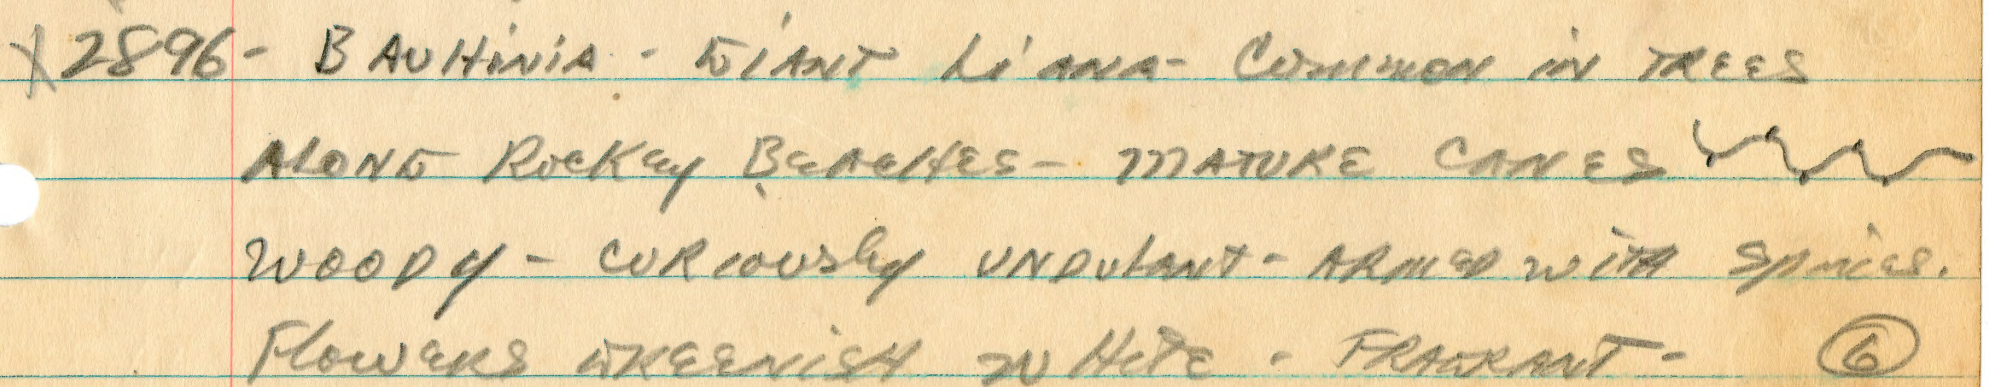 X 2896 - BAUHINIA - GIANT LIANA - COMMON IN TREES
ALONG ROCKEY BEACHES - MATURE CANES
WOODY - CURIOUSLY UNDULANT - ARMED WITH SPINES.
FLOWERS GREENISH WHITE - FRAGRANT - 6